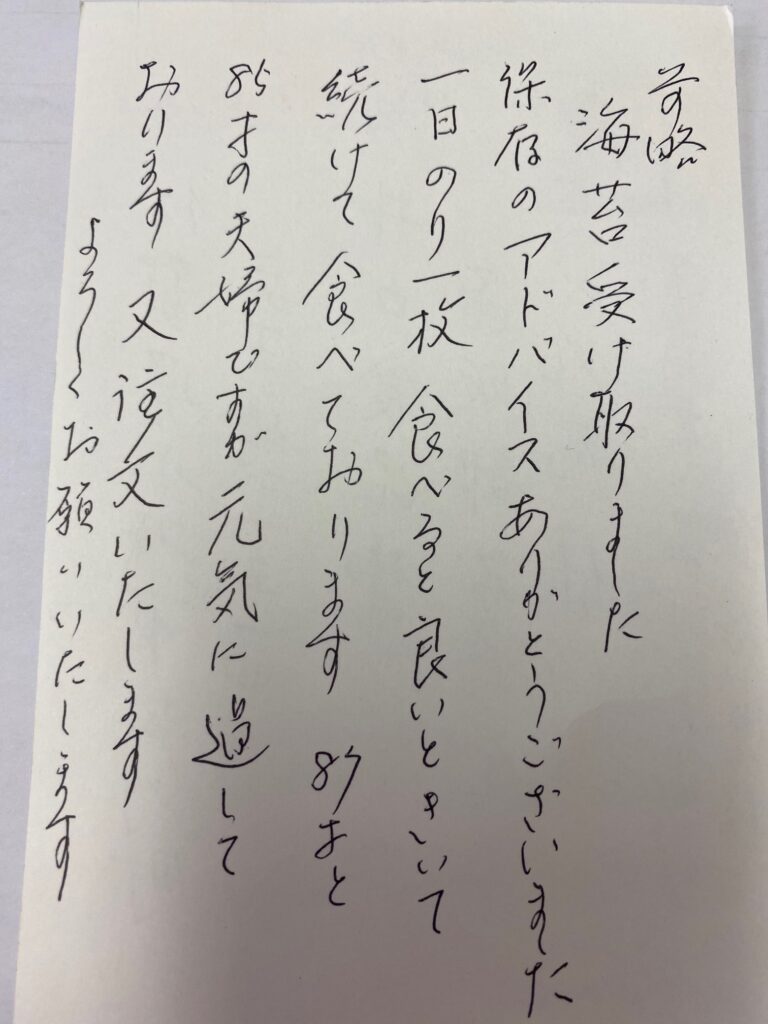 前略
海苔受け取りました
保存のアドバイスありがとうございました
一日のり一枚食べると良いときいて
続けて食べております 87才と
85才の夫婦ですが元気に過して
おります 又注文いたします
よろしくお願いいたします